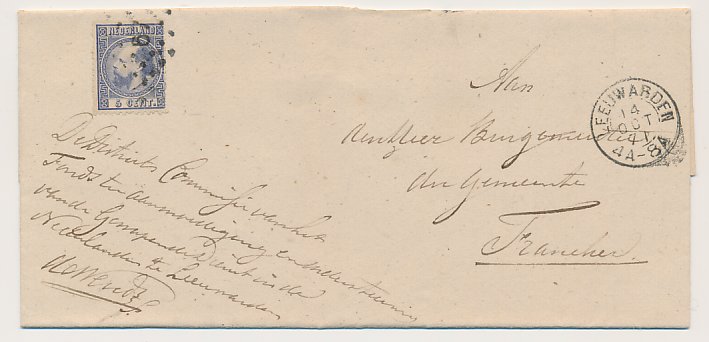 NEDERLAND
5 CENT.
LEEUWARDEN
14
OCT
4A-8A
Aan
den Heer Burgemeester
der Gemeente
Franeker.
De Districts Commissie van het
Fonds ter aanmoediging en ondersteuning
van de Gewapende Dienst in de
Nederlanden te Leeuwarden